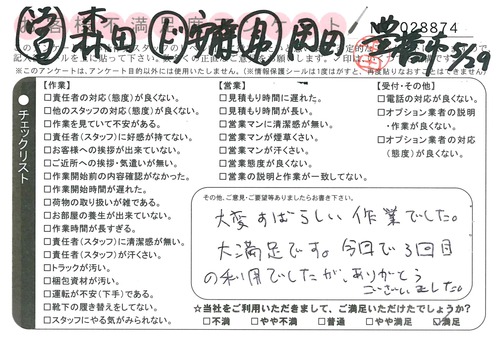 営 森田 リ 見 岡田 豊橋市 5/29
お客様不満足度アンケート
No 0028874
※このアンケートは、アンケート目的以外には使用いたしません。(※情報保護シールは1度はがすと、再度貼りなおすことはできません)
チェックリスト
【作業】
□責任者の対応(態度)が良くない。
□他のスタッフの対応(態度)が良くない。
□作業を見ていて不安がある。
□責任者(スタッフ)に好感が持てない。
□お客様への挨拶が出来ていない。
□ご近所への挨拶・気遣いが無い。
□作業開始前の内容確認がなかった。
□作業開始時間が遅れた。
□荷物の取り扱いが雑である。
□お部屋の養生が出来ていない。
□作業時間が長すぎる。
□責任者(スタッフ)に清潔感が無い。
□責任者(スタッフ)が汗くさい。
□トラックが汚い。
□梱包資材が汚い。
□運転が不安(下手)である。
□靴下の履き替えをしてない。
□スタッフにやる気がみられない。
【営業】
□見積もり時間に遅れた。
□見積もり時間が長い。
□営業マンに清潔感が無い。
□営業マンが煙草くさい。
□営業マンが汗くさい。
□営業態度が良くない。
□営業の説明と作業が一致してない。
【受付・その他】
□電話の対応が良くない。
□オプション業者の説明
・作業が良くない。
□オプション業者の対応
(態度)が良くない。
その他、ご意見・ご要望等ありましたらお書き下さい。
大変すばらしい作業でした。
大満足です。今回で3回目
の利用でしたが、ありがとう
ございました。
☆当社をご利用いただきまして、ご満足いただけたでしょうか?
□不満 □やや不満 □普通 □やや満足 ☑満足